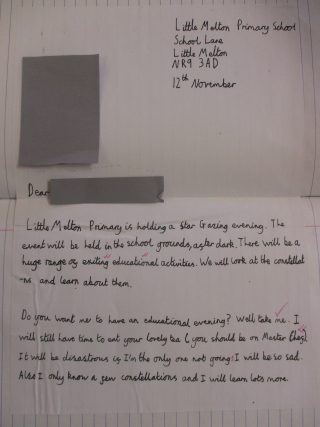 Little Melton Primary School
School Lane
Little Melton
NR9 3AD
12th November
Dear
Little Melton Primary is holding a Star Gazing evening. The
event will be held in the school grounds, after dark. There will be a
huge range of exiting educational activities. We will look at the constellat
-ns and learn about them.
Do you want me to have an educational evening? Well, take me. I
will still have time to eat your lovely tea (you should be on Master Chef).
It will be disastrous is I'm the only one not going: I will be so sad.
Also I only know a few constellations and I will learn lots more.